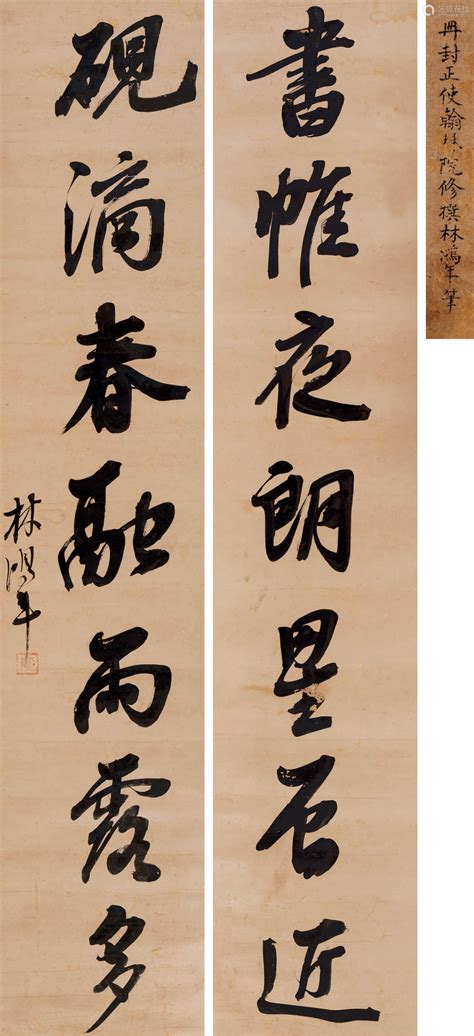 冊封正使翰林院修撰林鴻年筆
書帷夜朗星辰近
硯滴春融雨露多
林鴻年